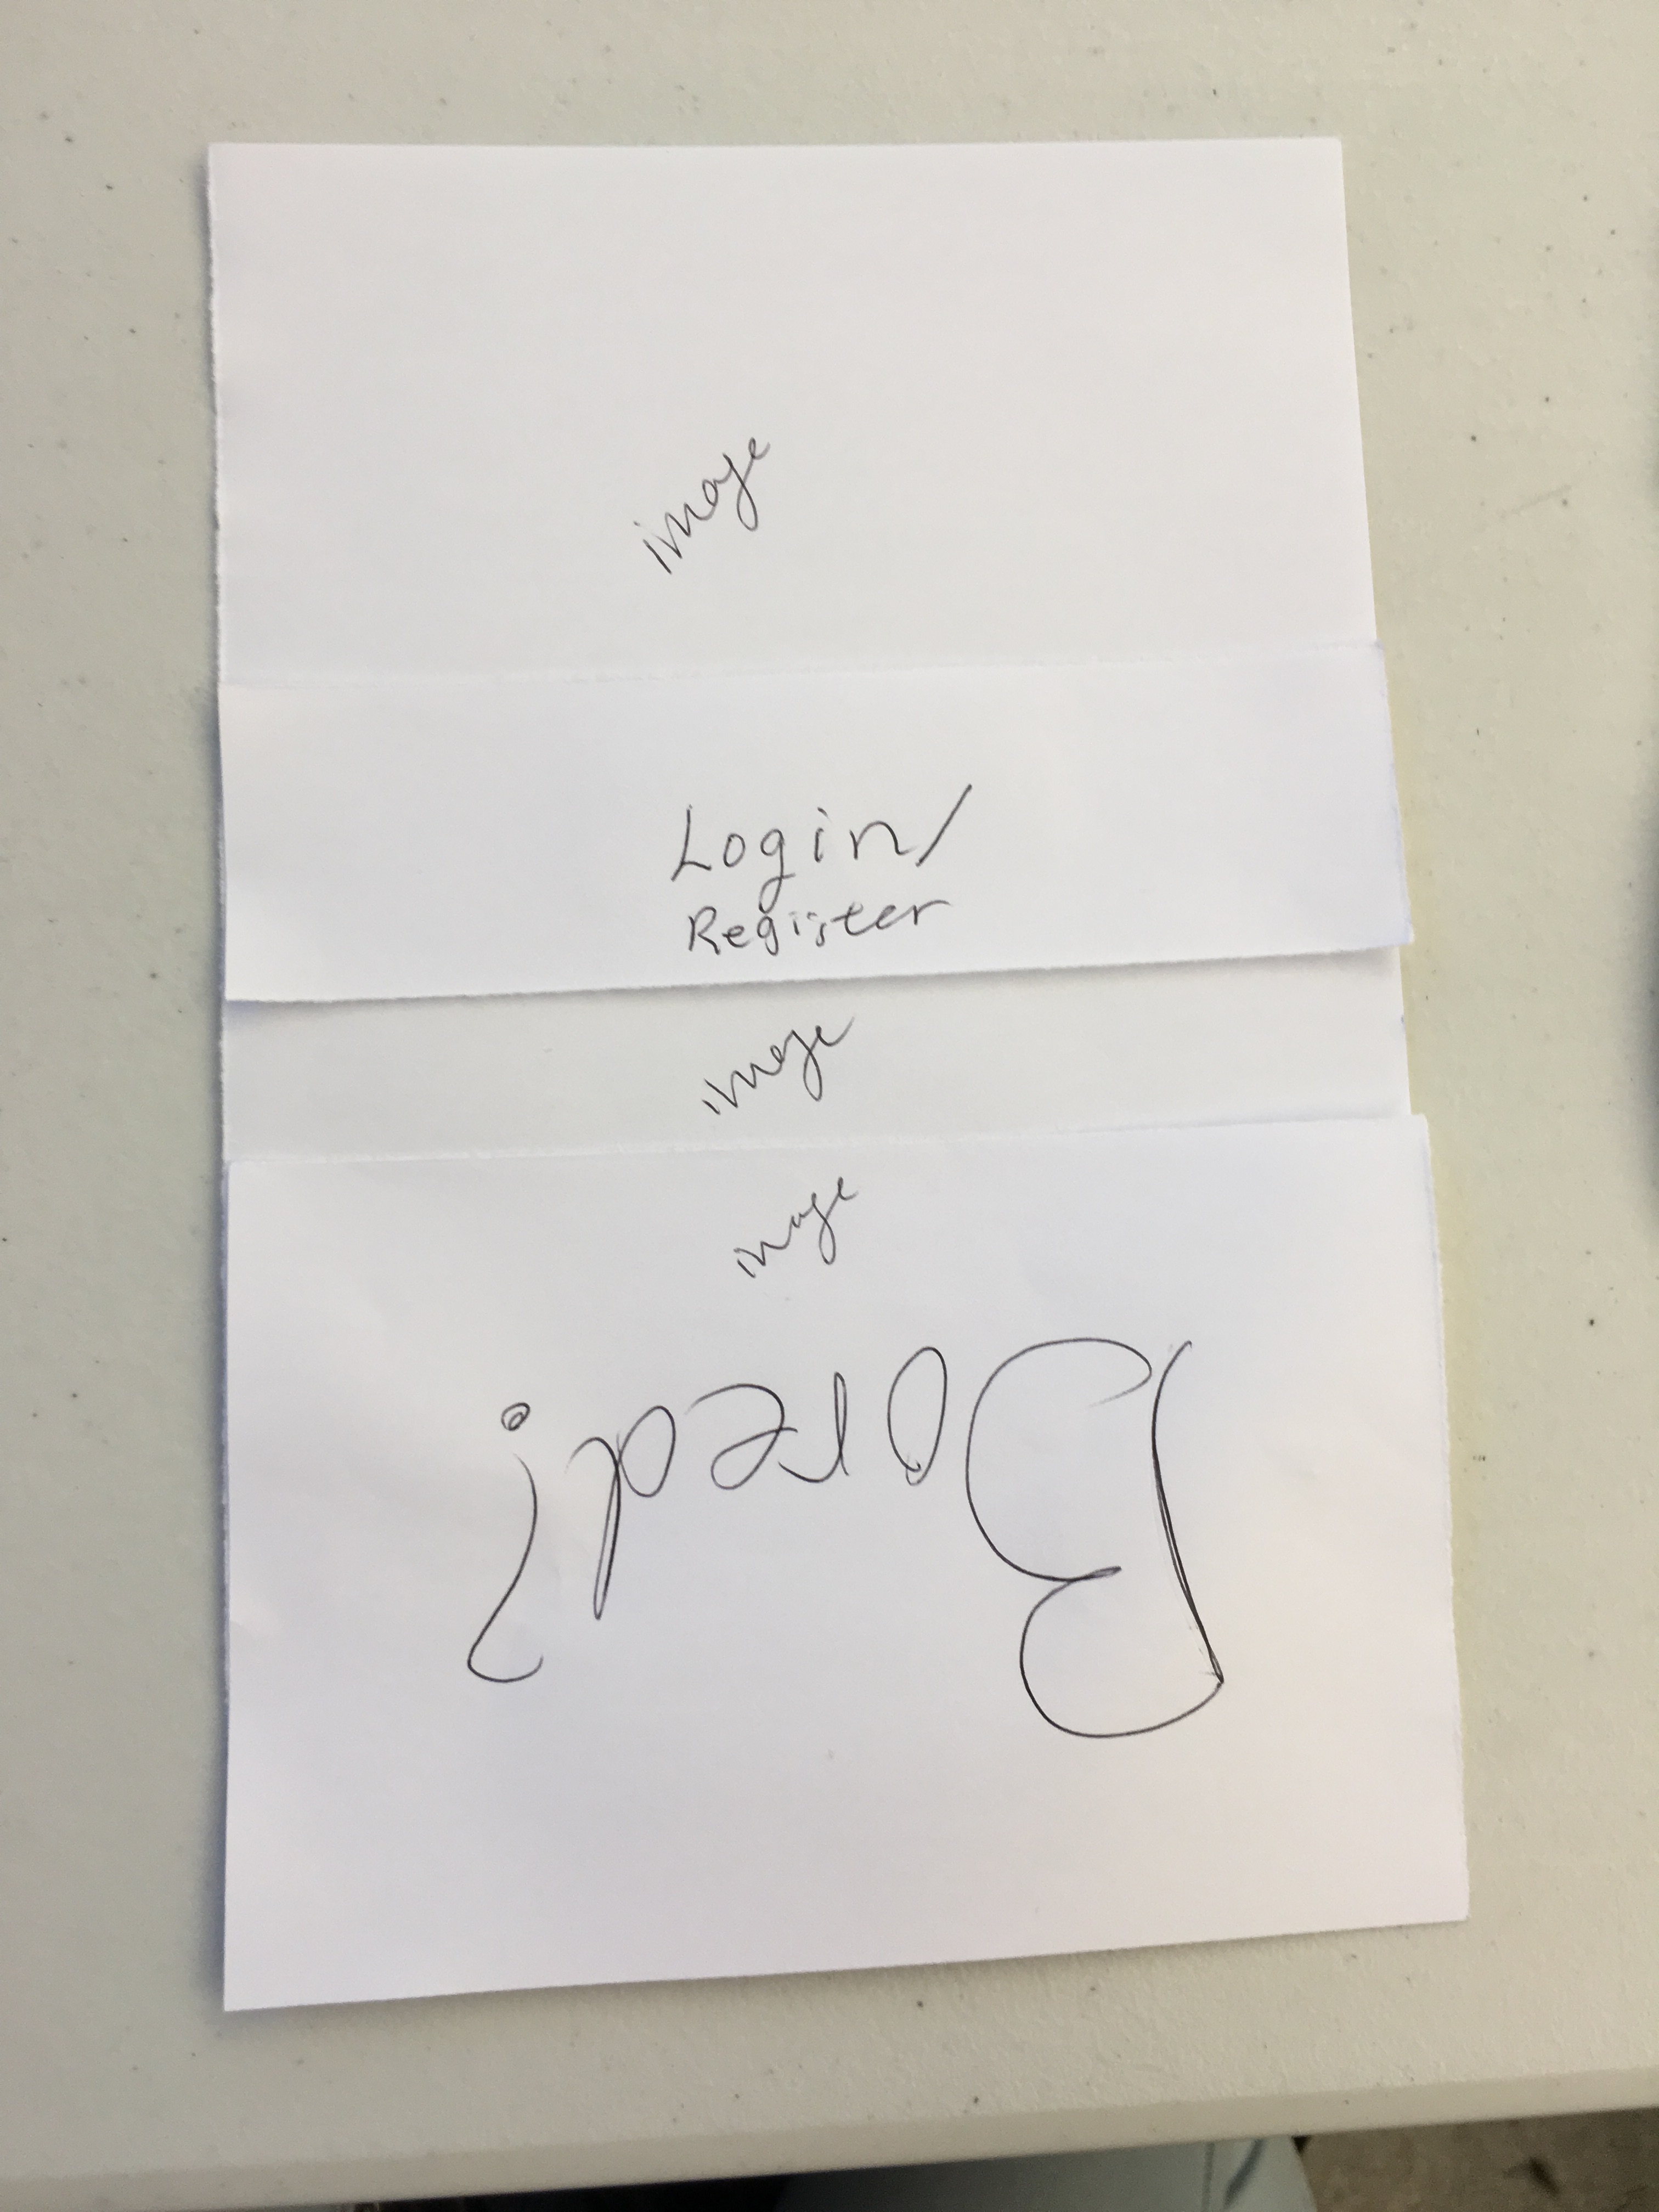 image
Login/
Register
image
image
Bored?